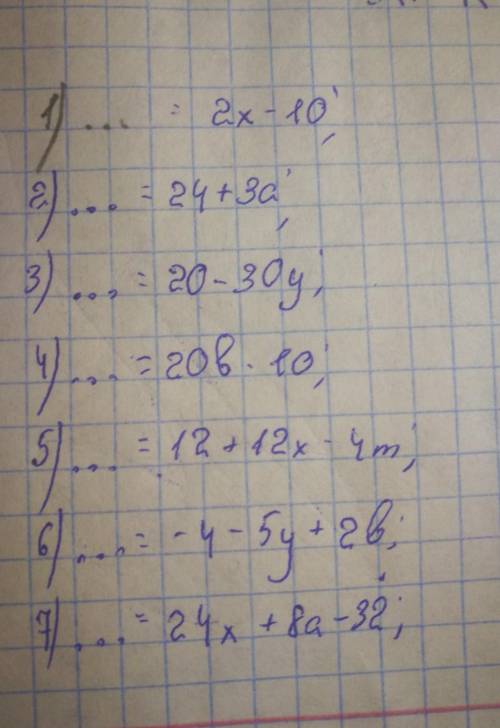 1) ... = 2x - 10;
2) ... = 24 + 3a;
3) ... = 20 - 30y;
4) ... = 20в - 10;
5) ... = 12 + 12x - 4m;
6) ... = -4 - 5y + 2в;
7) ... = 24x + 8a - 32;